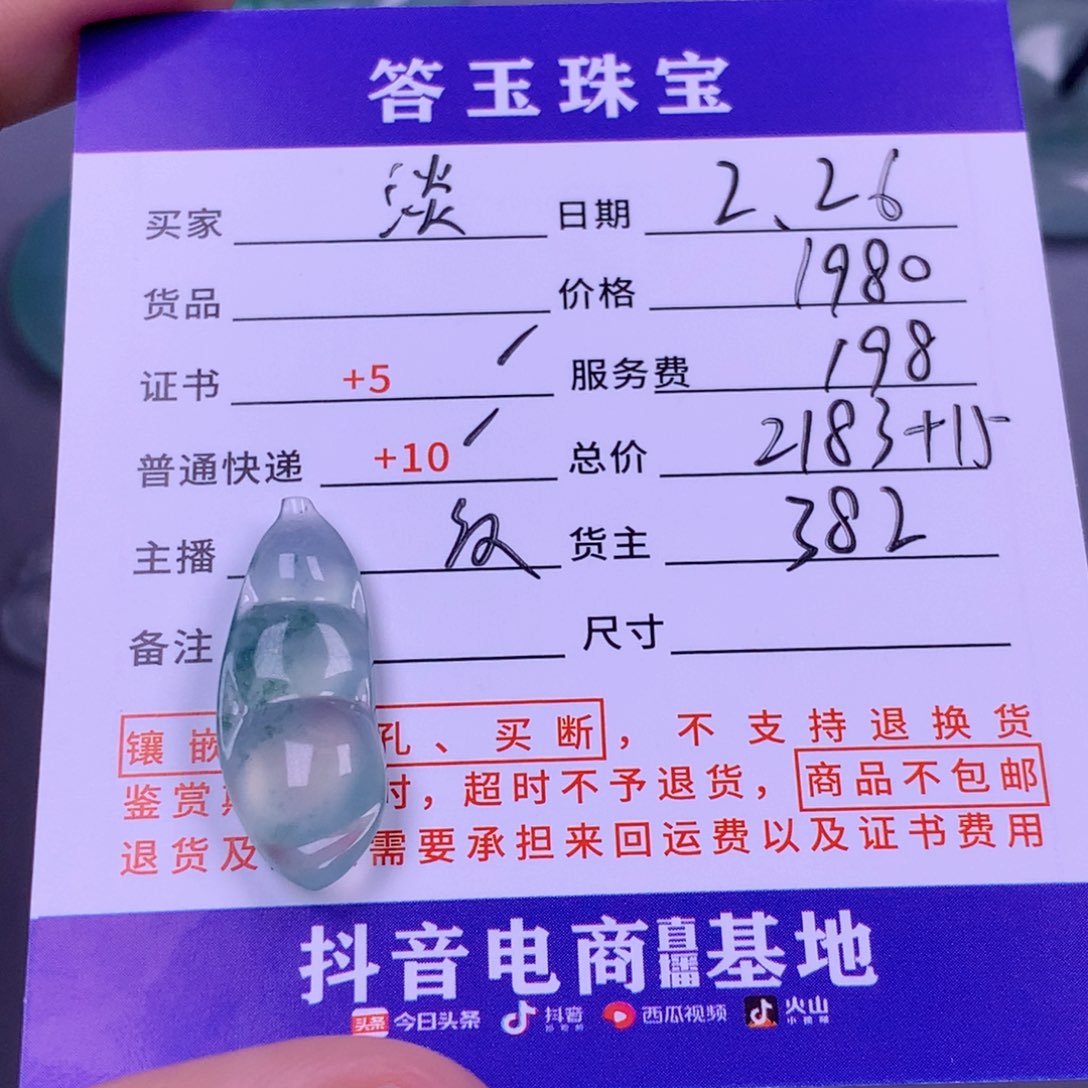 答玉珠宝
买家 淡 日期 2、26
货品 价格 1980
证书 +5 服务费 198
普通快递 +10 总价 2183+15
主播 货主 382
备注 尺寸
镶嵌 孔、买断，不支持退换货
鉴赏 时，超时不予退货，商品不包邮
退货及 需要承担来回运费以及证书费用
抖音电商直播基地
头条 今日头条 抖音 西瓜视频 火山